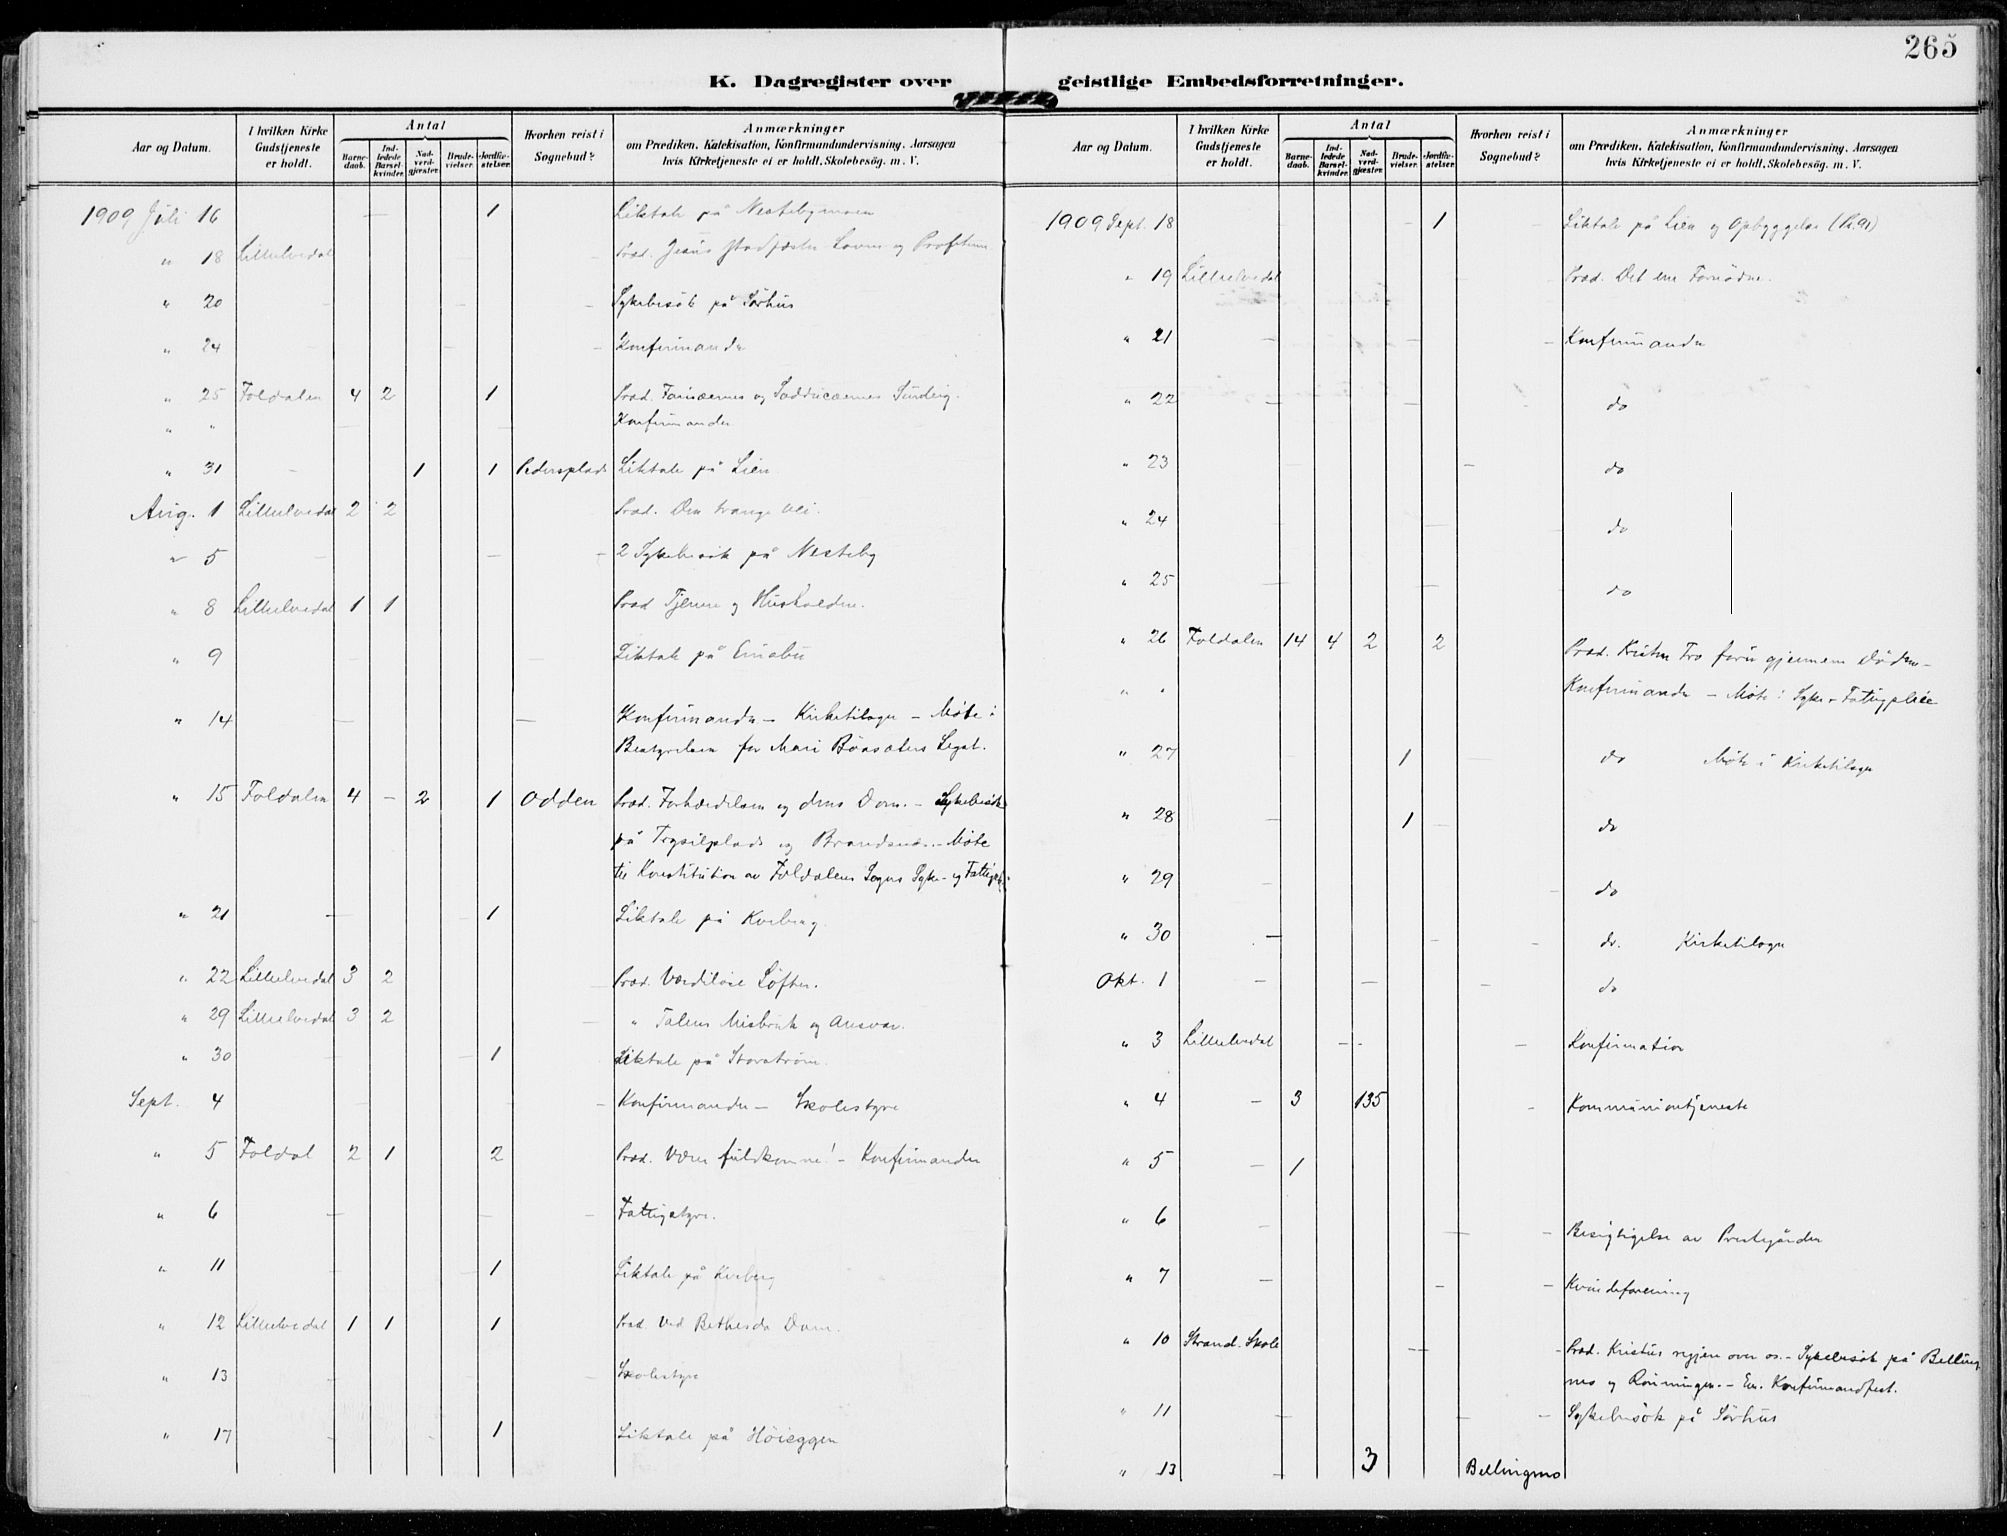 265
K. Dagregister over geistlige Embedsforretninger.
Aar og Datum. I hvilken Kirke Gudstjeneste er holdt. Antal Barnedaab. Indledede Barselkvinder. Nadverdgjæster. Brudevielser. Jordfæstelser. Hvorhen reist i Sognebud? Anmærkninger om Prædiken, Katekisation, Konfirmandundervisning, Aarsagen hvis Kirketjeneste ei er holdt, Skolebesög. m. V.
1909 Juli 16 1 Liktale på Nestebymoen
" 18 Lilleelvedal Præd. Jesus stadfæster Loven og Profetene
" 20 Sykebesök på Sörhus
" 24 Konfirmander
" 25 Foldalen 4 2 1 Præd. Farisæernes og Sadducæernes Surdeig.
" " Konfirmander
" 31 1 1 Pedersplads Liktale på Lien
Aug. 1 Lilleelvedal 2 2 Præd. Den trange Vei.
" 5 2 Sykebesök på Nesteby
" 8 Lilleelvedal 1 1 Præd Tjenere og Husholdere.
" 9 Liktale på Einabu
" 14 Konfirmander – Kirketilsyn – Möte i
Bestyrelsen for Mari Legat.
" 15 Foldalen 4 – 2 1 Odden Præd. Forhærdelsen og dens Dom. – Sykebesök
på Trysilplads og Brandsnes. – Möte
til Konstitution av Foldalens Sogns Syke- og
" 21 1 Liktale på Kveberg
" 22 Lilleelvedal 3 2 Præd. Værdilöse Löfter.
" 29 Lilleelvedal 3 2 " Talens Misbruk og Ansvar.
" 30 1 Liktale på Storström.
Sept. 4 Konfirmander – Skolestyre
" 5 Foldal 2 1 2 Præd. Værer fuldkomne! – Konfirmander
" 6 Fattigstyre.
" 11 1 Liktale på Kveberg
" 12 Lilleelvedal 1 1 1 Præd. Ved Bethesda Dam.
" 13 Skolestyre
" 17 1 Liktale på Höieggen
Aar og Datum. I hvilken Kirke Gudstjeneste er holdt. Antal Barnedaab. Indledede Barselkvinder. Nadverdgjæster. Brudevielser. Jordfæstelser. Hvorhen reist i Sognebud? Anmærkninger om Prædiken, Katekisation, Konfirmandundervisning, Aarsagen hvis Kirketjeneste ei er holdt, Skolebesög. m. V.
1909 Sept. 18 1 Liktale på Lien og Opbyggelse
" 19 Lilleelvedal Præd. Det ene Fornödne.
" 21 Konfirmander
" 22 do
" 23 do
" 24 do
" 25 do
" 26 Foldalen 14 4 2 2 Præd. Kristen Tro gjennem Döden –
" " Konfirmander – Möte i Syke- Fattigpleie
" 27 1 do Möte i Kirketilsyn
" 28 1 do
" 29 do
" 30 do. Kirketilsyn
Okt. 1 do
" 3 Lilleelvedal Konfirmation
" 4 – 3 135 Kommuniontjeneste
" 5 – 1
" 6 Besigtigelse av Prestegården
" 7 Kvindeforening
" 10 Strand. Skole Præd. Kristus regjere over os. – Sykebesök på Belling-
mo og Rönningen. – Em. Konfirmandfest.
" 11 Sykebesök på Sörhus
" 13 3 Bellingmo